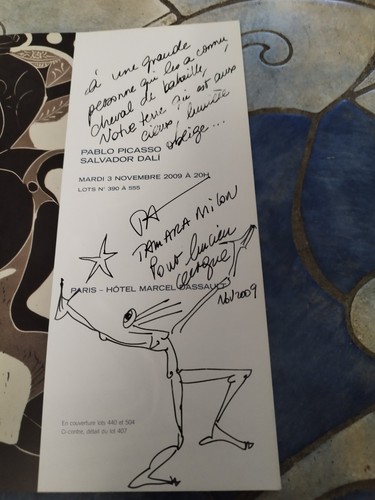 à une grande
personne qui les a connu,
cheval de bataille,
Notre terre qui est aussi
cieux, lumière
oblige...
PABLO PICASSO
SALVADOR DALÍ
MARDI 3 NOVEMBRE 2009 À 20H
LOTS N° 390 À 555
TAMARA MILON
Pour Lucien
PARIS - HÔTEL MARCEL DASSAULT
2009
En couverture lots 440 et 504
Ci-contre, détail du lot 407